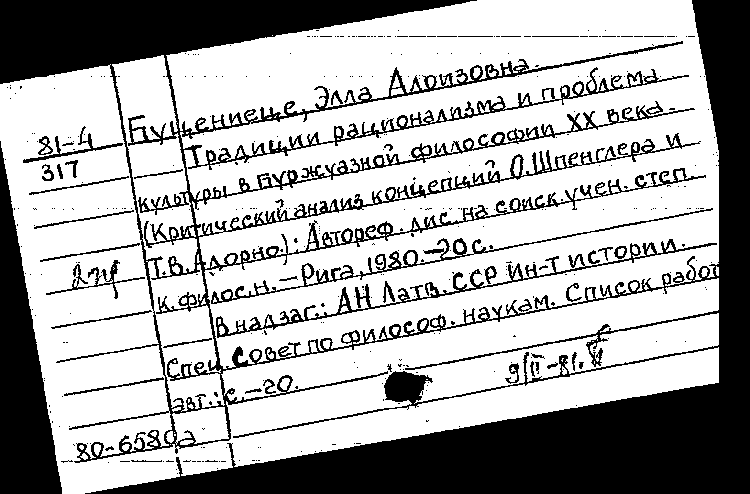 81-4
317
Бущениеце, Элла Алоизовна.
Традиции рационализма и проблема
культуры в буржуазной философии XX века.
(Критический анализ концепций О.Шпенглера и
Т.В.Адорно): Автореф. дис. на соиск. учен. степ.
к. филос. н. – Рига, 1980. – 20 с.
В надзаг.: АН Латв. ССР Ин-т истории.
Спец. Совет по философ. наукам. Список работ
авт.: с. – 20.
9/II-81.
80-6580а